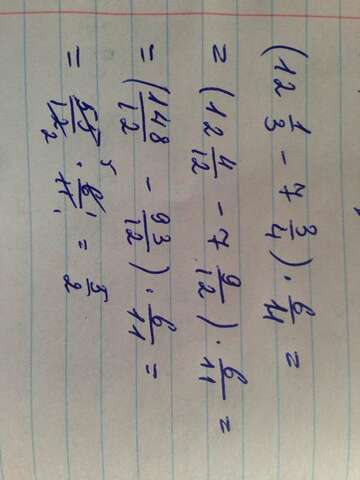 (12 1/3 - 7 3/4) · 6/11 =
= (12 4/12 - 7 9/12) · 6/11 =
= (148/12 - 93/12) · 6/11 =
= 55/12 2 · 5 6/11 1 1 = 5/2